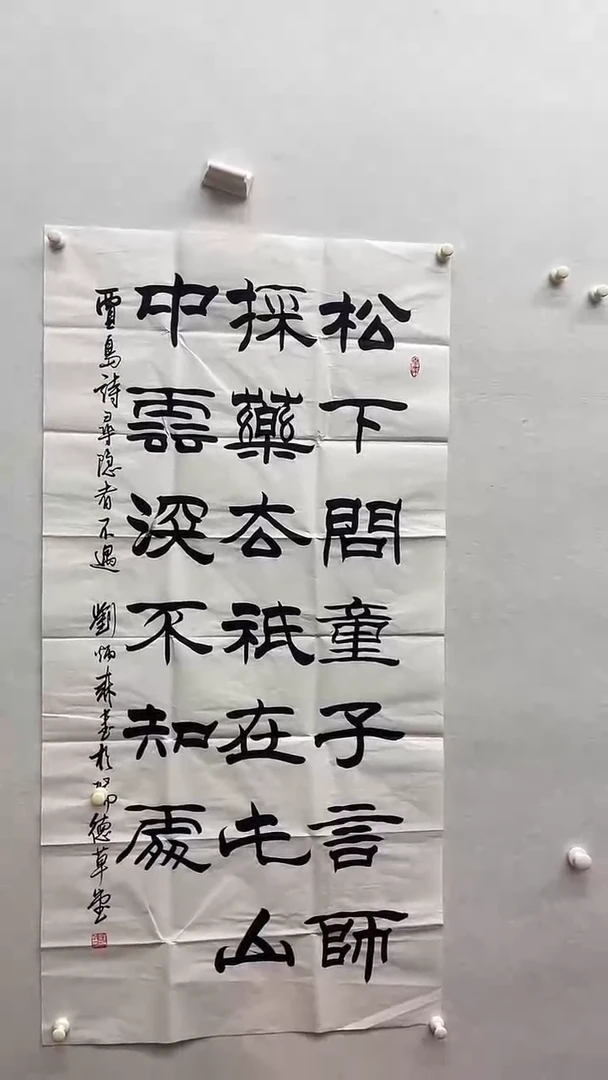 松下問童子言師
採藥去祇在此山
中雲深不知處
賈島詩尋隐者不遇 劉炳森書於德草堂